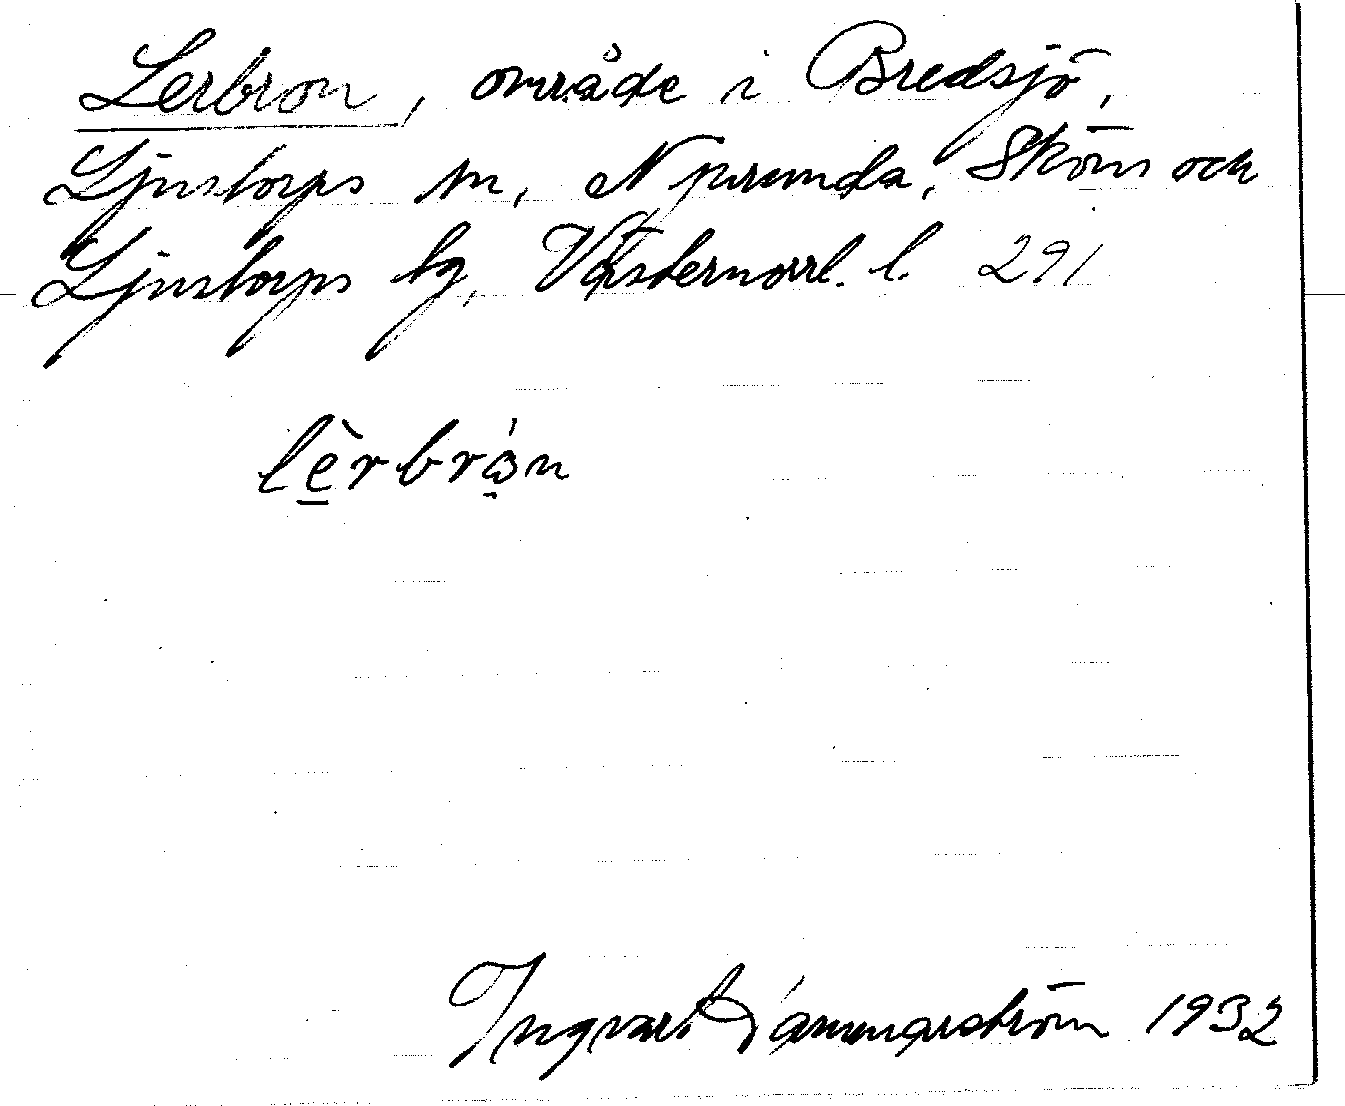 Lerbron, område i Bredsjö,
Ljustorps sn, Njurunda, Sköns och
Ljustorps tg, Västernorrl. l. 291
lèrbrón
Ingvart 1932